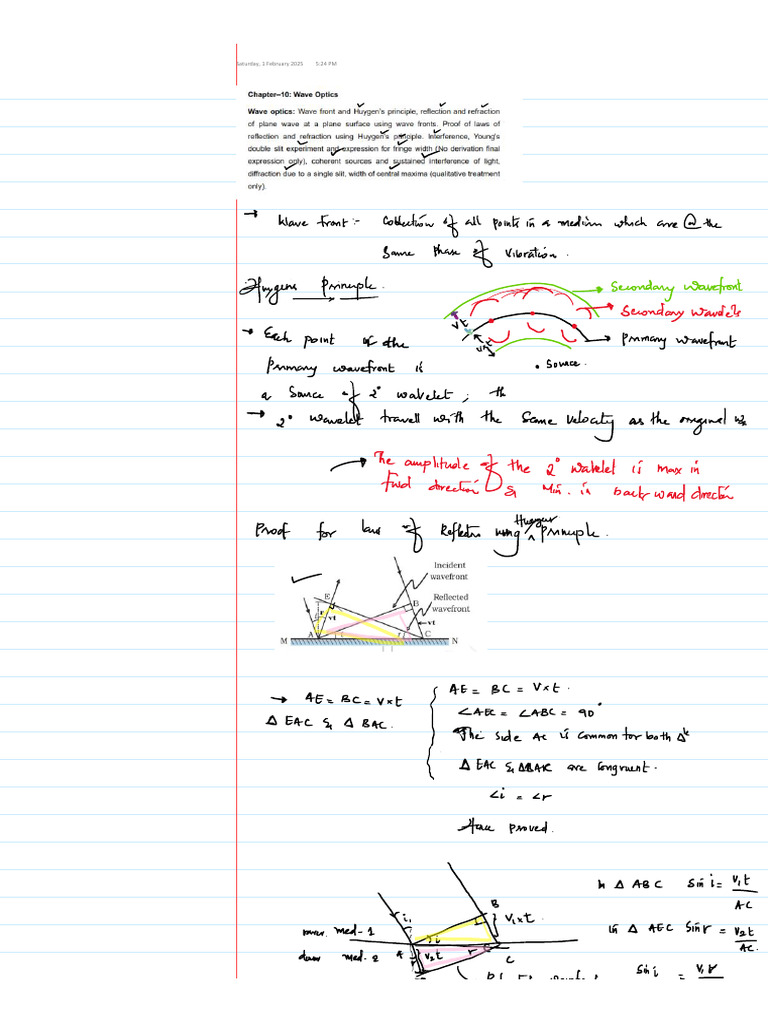 Saturday, 1 February 2025 5:24 PM
Chapter–10: Wave Optics
Wave optics: Wave front and Huygen's principle, reflection and refraction
of plane wave at a plane surface using wave fronts. Proof of laws of
reflection and refraction using Huygen's principle. Interference, Young's
double slit experiment and expression for fringe width (No derivation final
expression only), coherent sources and sustained interference of light,
diffraction due to a single slit, width of central maxima (qualitative treatment
only).
→ Wave front:- Collection of all points in a medium which are @ the
Same Phase of Vibration.
Huygens Principle.
→ Secondary wavefront
→ Secondary wavelets
→ Primary wavefront
vt
vt
• Source.
→ Each point of the
Primary wavefront is
a Source of 2° wavelet, th
→ 2° wavelet travell with the same velocity as the original
→ The amplitude of the 2° wavelet is max in
fwd direction & Min. in back ward direction
Proof for law of Reflection using Huygens Principle.
Incident
wavefront
Reflected
wavefront
E
B
vt
vt
A
C
M
N
i
r
→ AE = BC = V×t
Δ EAC & Δ BAC.
AE = BC = V×t.
∠AEC = ∠ABC = 90°
The side AC is common for both Δ
Δ EAC & ΔBAC are congruent.
∠i = ∠r
Hence proved.
In Δ ABC Sin i = V₁t / AC
In Δ AEC Sin r = V₂t / AC.
Sin i =
B
V₁×t.
i
i
med-1
med-2
A
V₂t
r
C